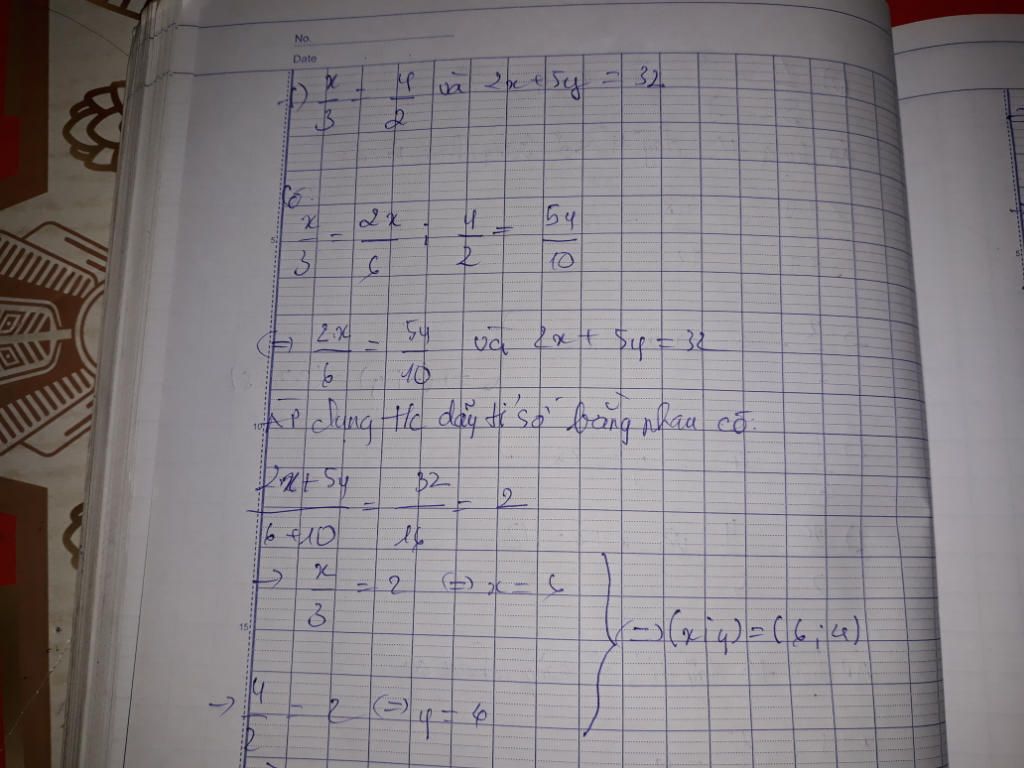 No.
Date
b) x/3 = y/2 và 2x + 5y = 32
Có
x/3 = 2x/6 ; y/2 = 5y/10
5
(=) 2x/6 = 5y/10 và 2x + 5y = 32
10 AD dụng t/c dãy tỉ số bằng nhau có.
2x+5y/6+10 = 32/16 = 2
→ x/3 = 2 (=) x = 6
15 (=) (x;y) = (6;4)
→ y/2 = 2 (=) y = 4